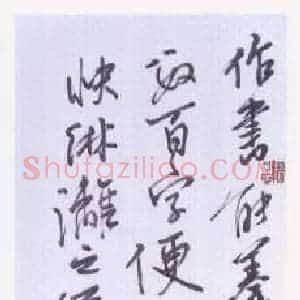 作書能摹
数百字便
快淋灕之
Shufaziliao.com